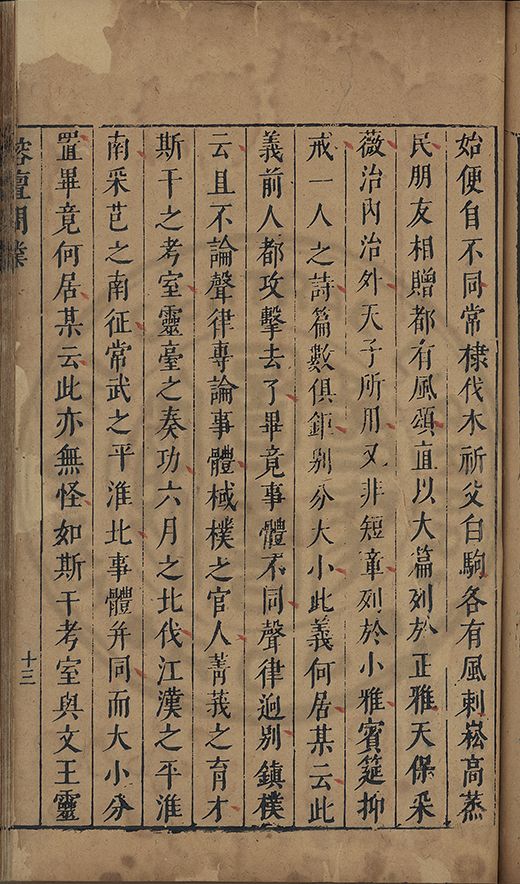 始便自不同常棣伐木祈父白駒各有風刺崧高蒸
民朋友相贈都有風頌直以大篇列於正雅天保采
薇治內治外天子所用又非短章列於小雅賓筵抑
戒一人之詩篇數俱鉅別分大小此義何居某云此
義前人都攻擊去了畢竟事體不同聲律迥別鎮樸
云且不論聲律專論事體棫樸之官人菁莪之育才
斯干之考室靈臺之奏功六月之北伐江漢之平淮
南采芑之南征常武之平淮北事體并同而大小分
置畢竟何居某云此亦無怪如斯干考室與文王靈
榕壇問業
十三